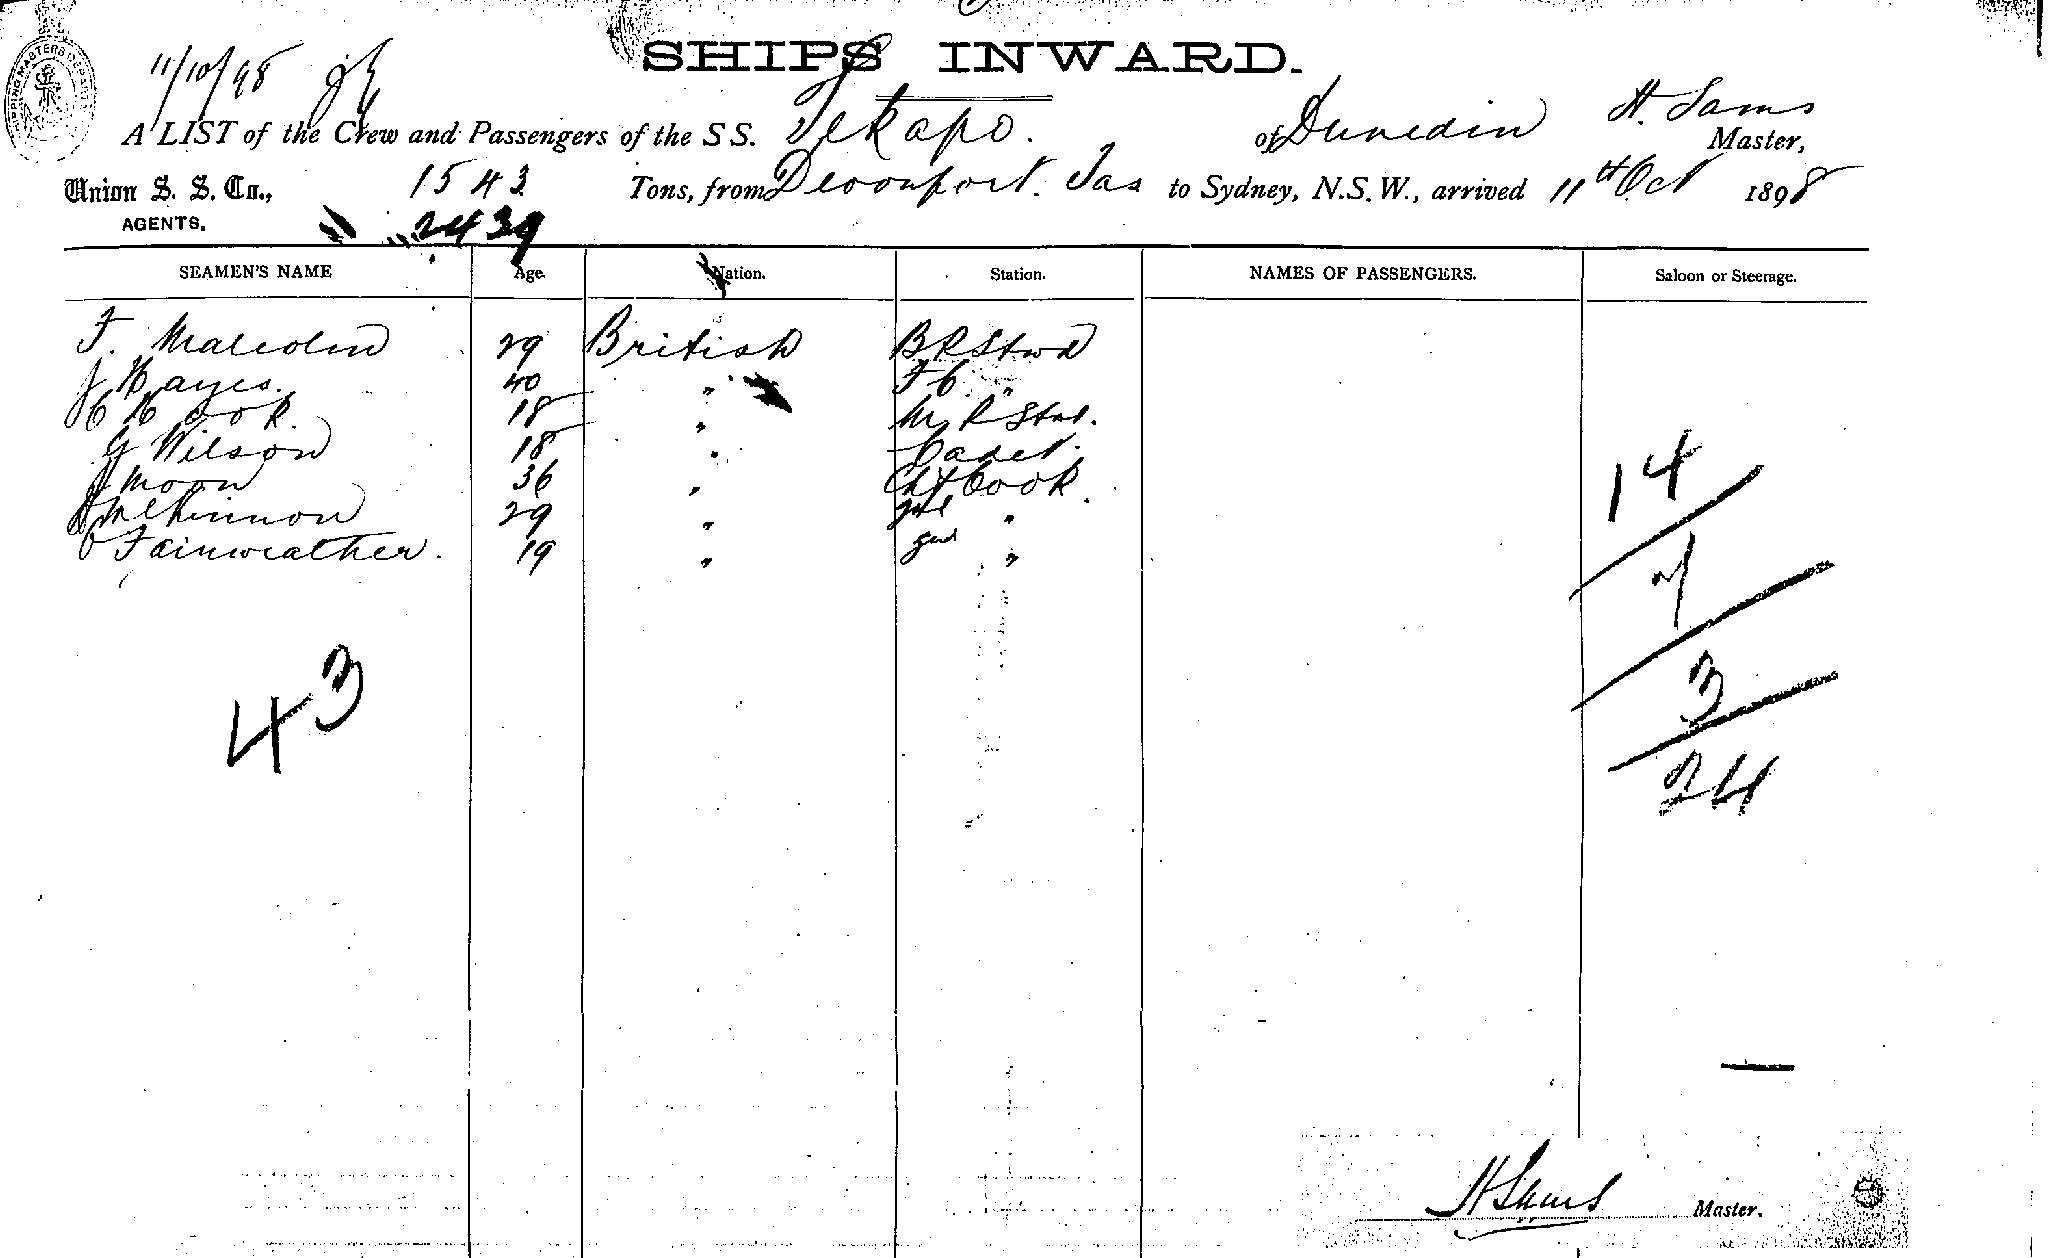 SHIPS INWARD.
11/10/98
A LIST of the Crew and Passengers of the SS. Tekapo. of Dunedin H. Sams Master,
Union S. S. Co., 1543 Tons, from Devonport. Tas to Sydney, N.S.W., arrived 11th Oct 1898
AGENTS. 2439
SEAMEN'S NAME Age. Nation. Station. NAMES OF PASSENGERS. Saloon or Steerage.
F. Malcolm 29 British B R Stwd
J Hayes. 40 " F C "
C H Cook 18 " M R Stwd.
G Wilson 18 " Cadet.
J Moon 36 " Ch Cook
J McKinnon 29 " 2nd "
C Fairweather. 19 " "
14
7
3
24
43
H Sams Master.